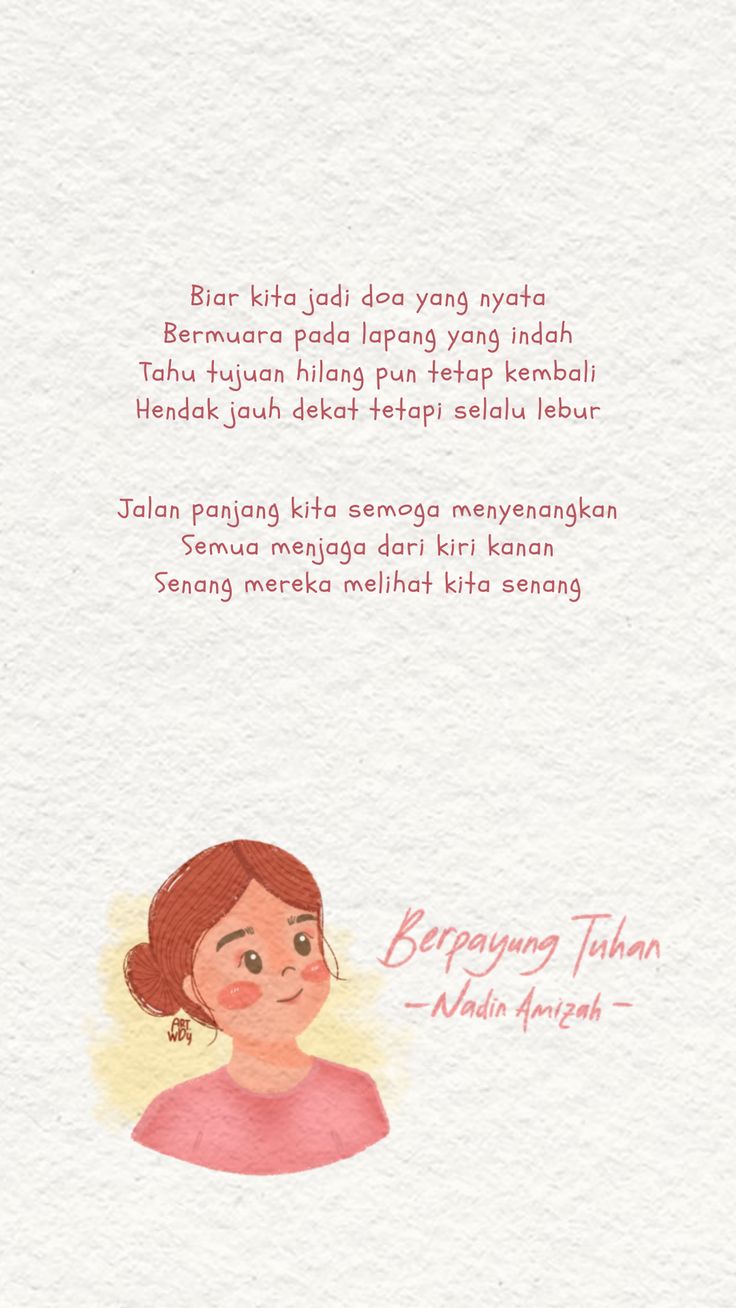 Biar kita jadi doa yang nyata
Bermuara pada lapang yang indah
Tahu tujuan hilang pun tetap kembali
Hendak jauh dekat tetapi selalu lebur
Jalan panjang kita semoga menyenangkan
Semua menjaga dari kiri kanan
Senang mereka melihat kita senang
Berpayung Tuhan
– Nadin Amizah –
ART
WDy